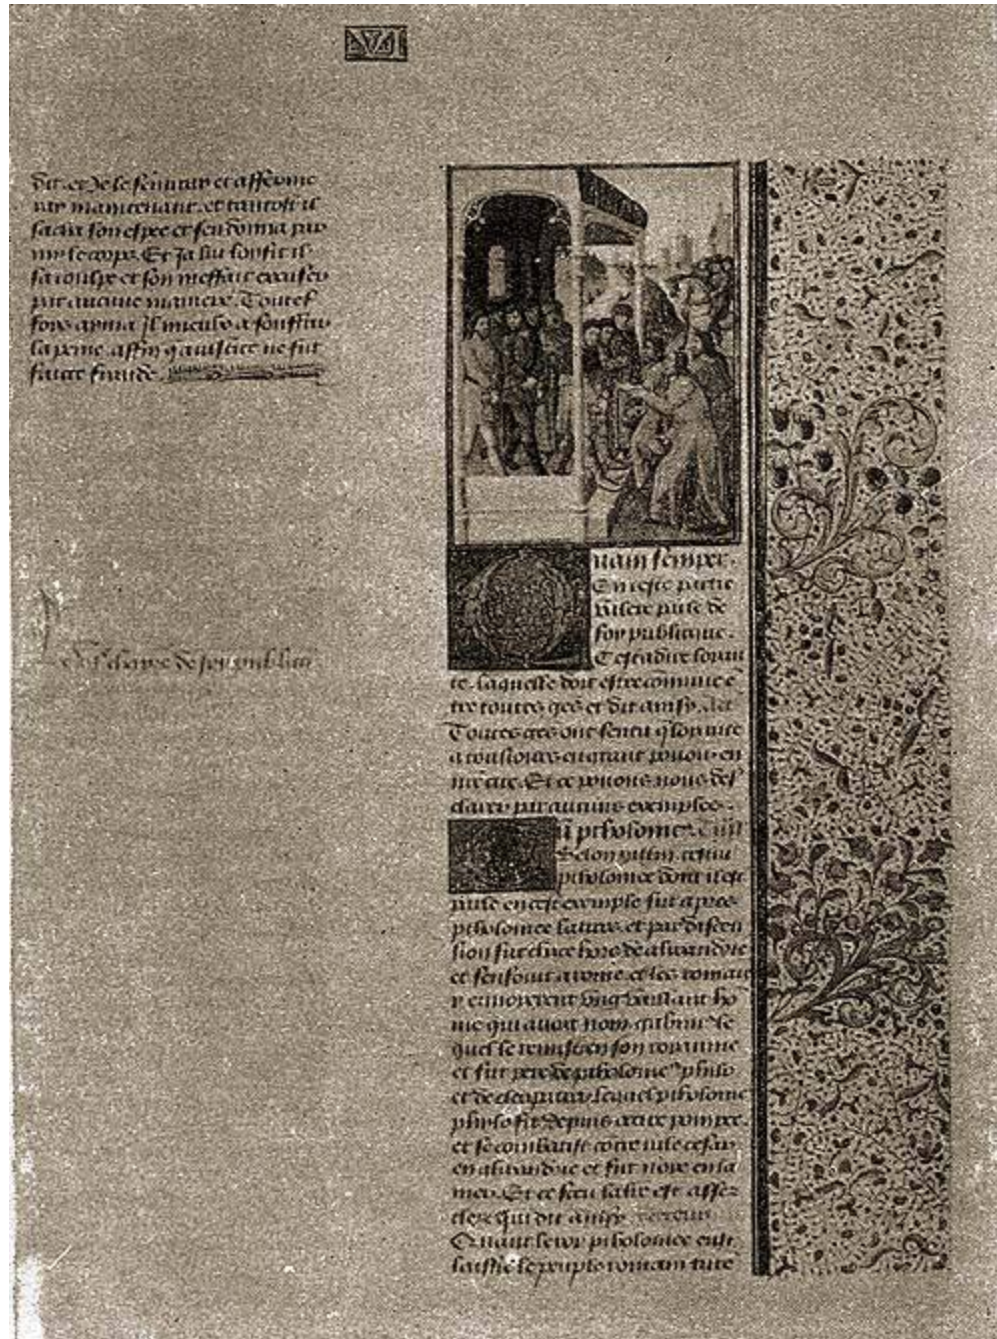 VI
dit. et de le
maintenant. et tantost il
sacha son espee et sen donna par
my le corps. Et Ja
sa coulpe et son meffait excuser
par aucune maniere. Toutes
fois ayma Il mieulx a souffrir
la peine affin q iustice ne fut
faicte fraude.
De foy publicque
uam semper.
En ceste partie
valere parle de
foy publicque.
Cestadire loyau
te. laquelle doit estre commune e
tre toutes ges et dit ainsi.
Toutes ges ont sentu q loyaulte
a tousiours
Et ce pouons nous des
clairer par aucuns exemples.
ptholomee
Selon
ptholomee dont il est
parle en cest exemple fut apres
ptholomee et par discen
sion fut chace hors de alixandrie
et senfouit a rome. et les romais
y envoierent ung vaillant ho
me qui avoit nom gabine le
quel le remist en son royaume
et fut pere de ptholomee philo
et de cleopatre lequel ptholome
philo fit depuis occire pompee.
et se combatist cotre iule cesar
en alixandrie et fut noye en la
mer. Et ce est assez
cler qui dit ainsi
Quant le roy ptholomee eust
laissie le peuple romain tute